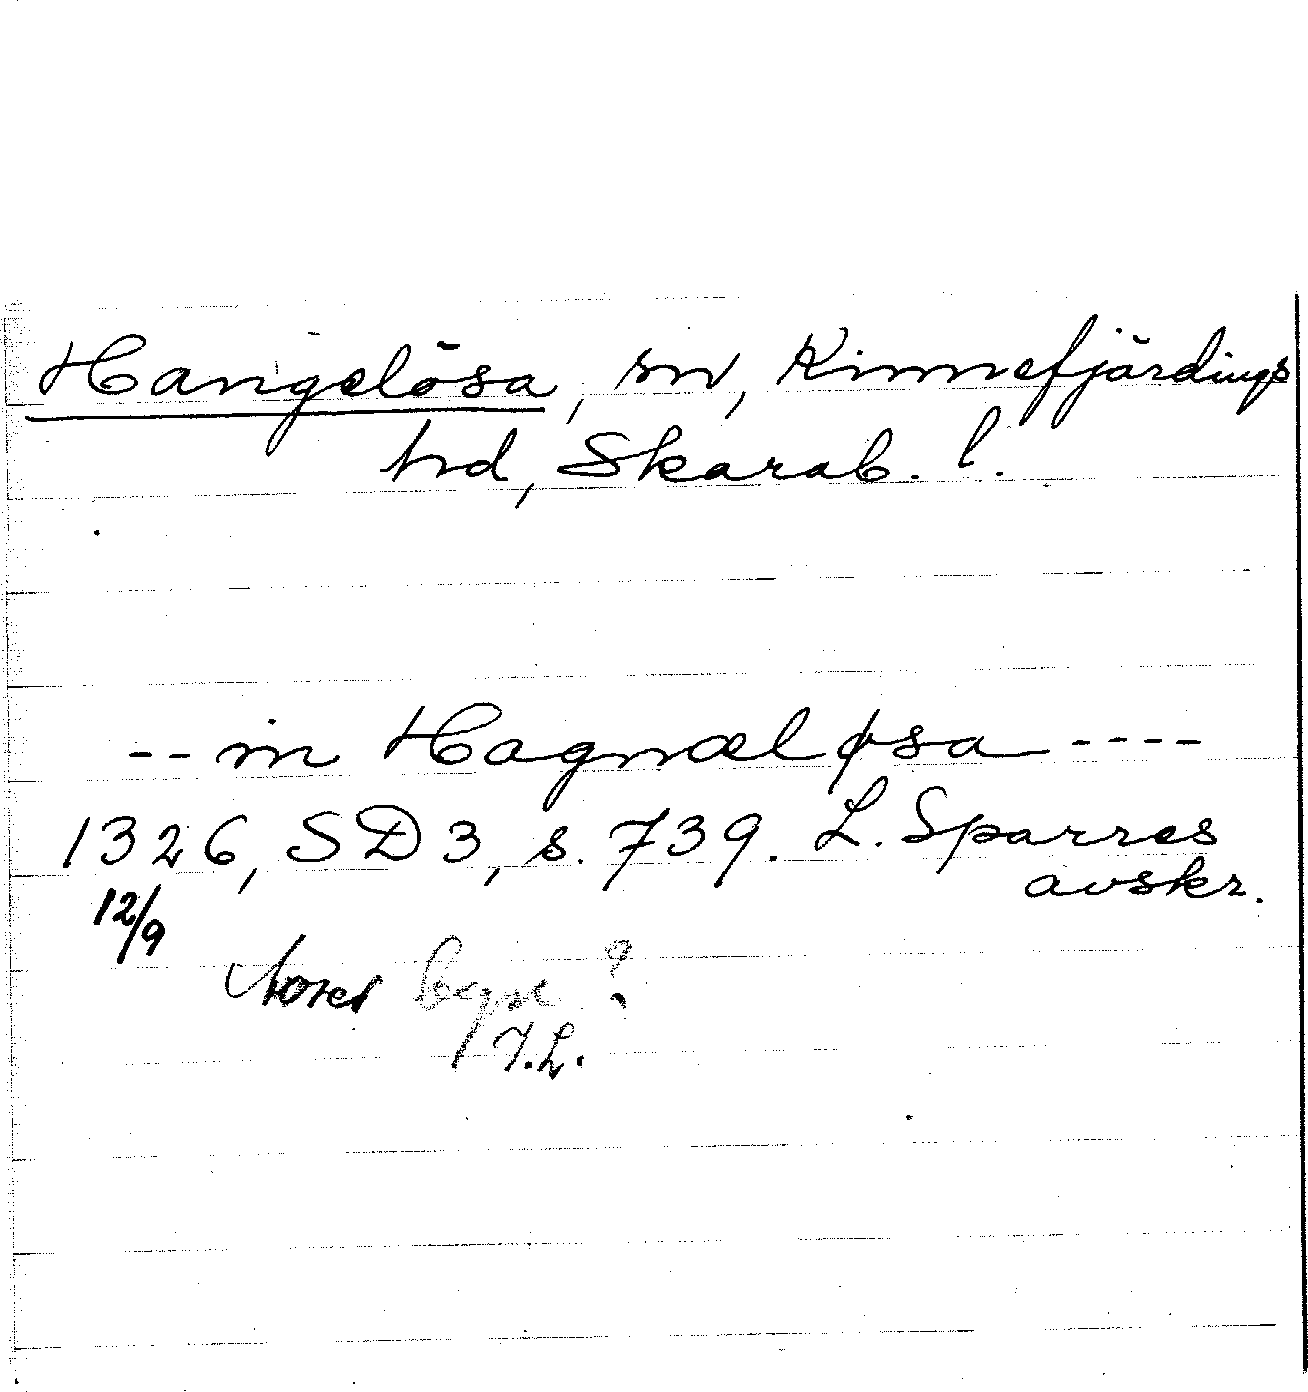 Hangelösa, sn, Kinnefjärdings
hd, Skarab. l.
-- in Hagnæløsa ----
1326, SD 3, s. 739. L. Sparres
avskr.
12/9
?
/ I.L.